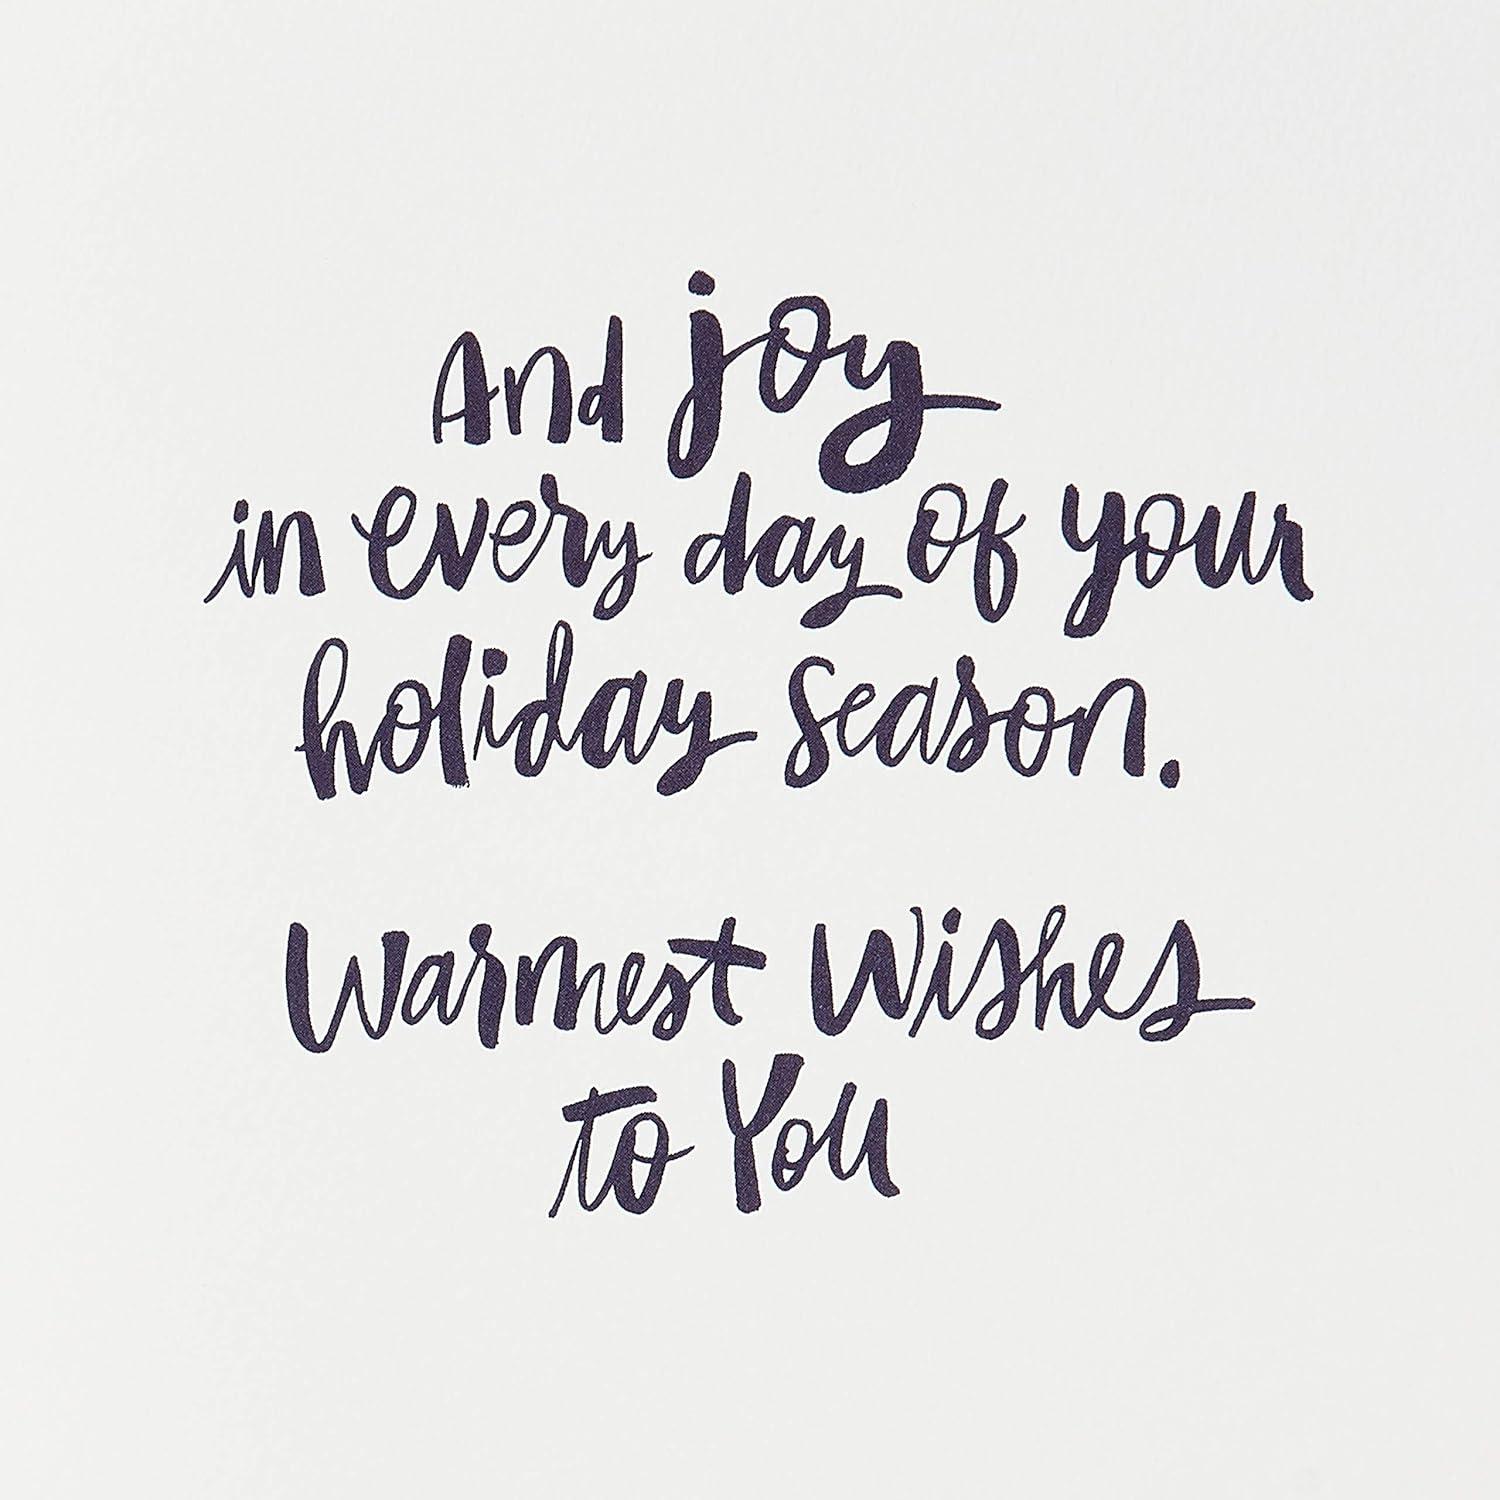 And joy
in every day of your
holiday season.
Warmest Wishes
to You